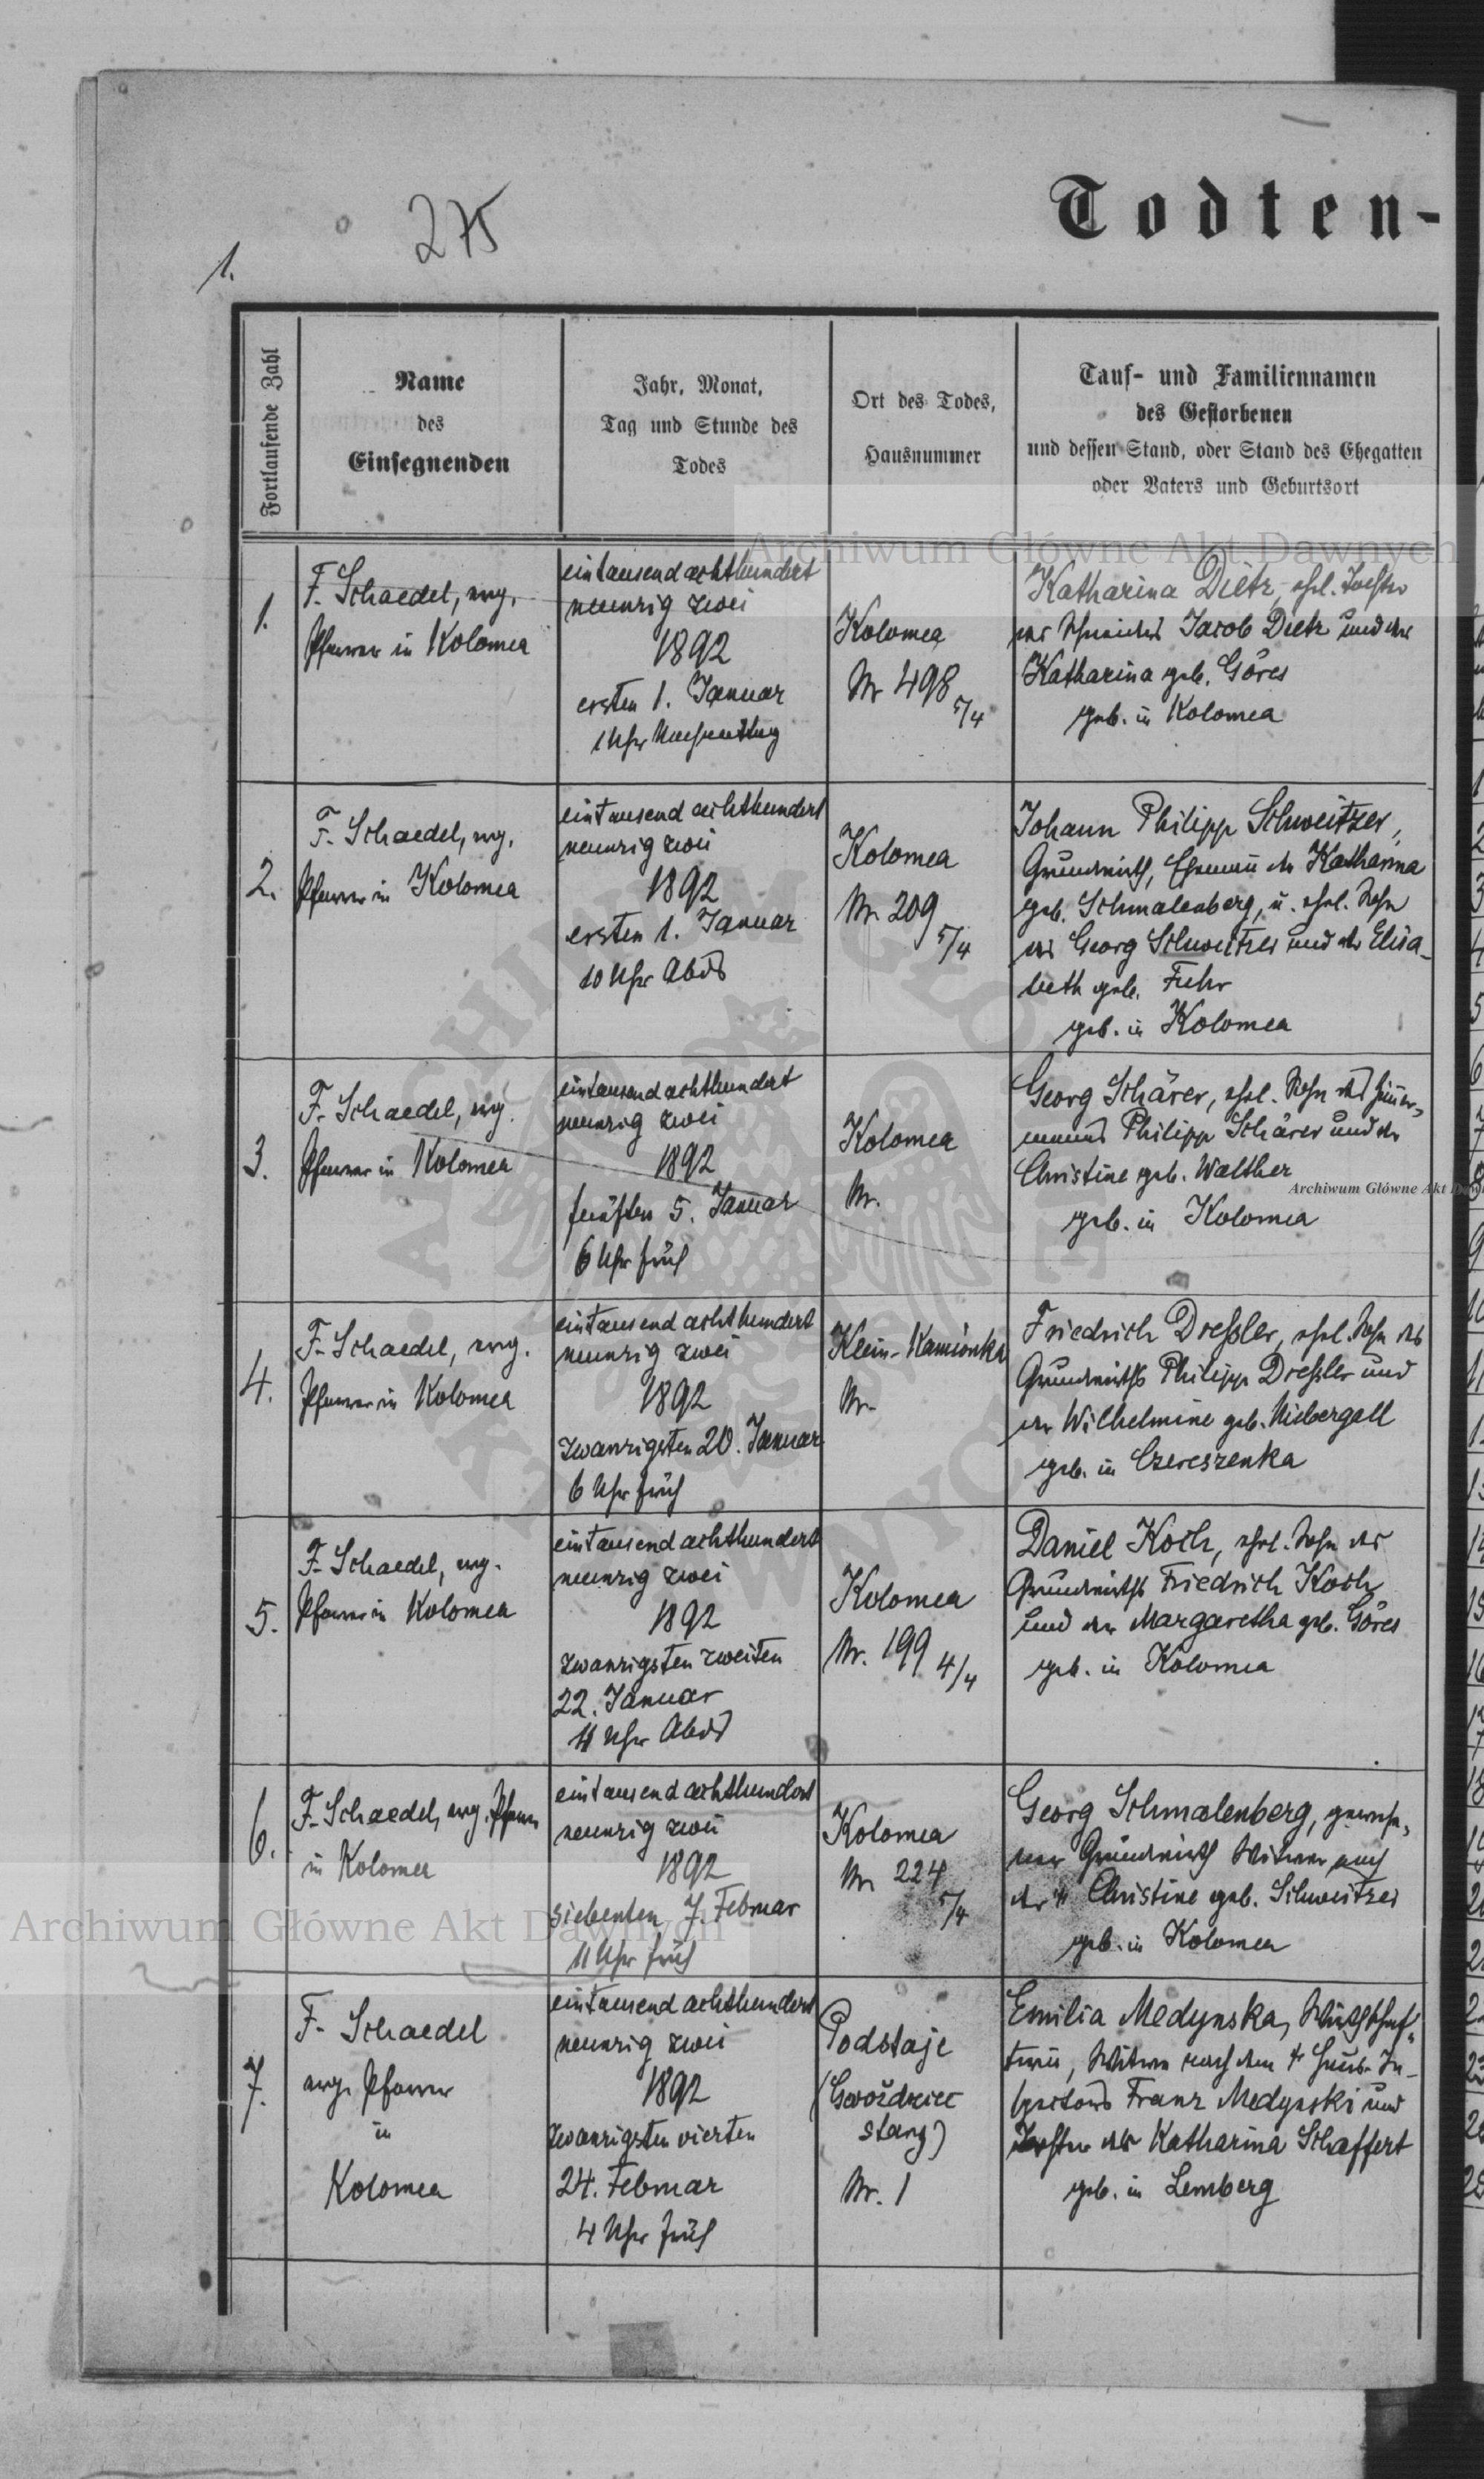 275
1.
Todten-
Fortlaufende Zahl
Name
des
Einsegnenden
Jahr, Monat,
Tag und Stunde des
Todes
Ort des Todes,
Hausnummer
Tauf- und Familiennamen
des Gestorbenen
und dessen Stand, oder Stand des Ehegatten
oder Vaters und Geburtsort
Archiwum Główne Akt Dawnych
1.
F. Schaedel, evg.
Pfarrer in Kolomea
eintausend achthundert
neunzig zwei
1892
ersten 1. Januar
1 Uhr Nachmittag
Kolomea
Nr 498
5/4
Katharina Dietz, ehel. Tochter
des Schneiders Jacob Dietz und der
Katharina geb. Göres
geb. in Kolomea
2.
F. Schaedel, evg.
Pfarrer in Kolomea
eintausend achthundert
neunzig zwei
1892
ersten 1. Januar
10 Uhr Abds
Kolomea
Nr. 209
5/4
Johann Philipp Schweitzer,
Grundwirth, Ehemann der Katharina
geb. Schmalenberg, u. ehel. Sohn
des Georg Schweitzer und der Elisa-
beth geb. Fuhr
geb. in Kolomea
3.
F. Schaedel, evg.
Pfarrer in Kolomea
eintausend achthundert
neunzig zwei
1892
fünften 5. Januar
6 Uhr früh
Kolomea
Nr.
Georg Schärer, ehel. Sohn des Zimmer-
manns Philipp Schärer und der
Christine geb. Walther
geb. in Kolomea
Archiwum Główne Akt
4.
F. Schaedel, evg.
Pfarrer in Kolomea
eintausend achthundert
neunzig zwei
1892
zwanzigsten 20. Januar
6 Uhr früh
Klein-Kamionka
Nr.
Friedrich Dreßler, ehel. Sohn des
Grundwirths Philipp Dreßler und
der Wilhelmine geb. Niebergall
geb. in Czereszenka
5.
F. Schaedel, evg.
Pfarrer in Kolomea
eintausend achthundert
neunzig zwei
1892
zwanzigsten zweiten
22. Januar
11 Uhr Abds
Kolomea
Nr. 199 4/4
Daniel Koch, ehel. Sohn des
Grundwirths Friedrich Koch
und der Margaretha geb. Göres
geb. in Kolomea
6.
F. Schaedel, evg. Pfarrer
in Kolomea
eintausend achthundert
neunzig zwei
1892
siebenten 7. Februar
11 Uhr früh
Kolomea
Nr 224
5/4
Georg Schmalenberg, gewese-
ner Grundwirth Witwer nach
der † Christine geb. Schweitzer
geb. in Kolomea
Archiwum Główne Akt Dawnych
7.
F. Schaedel
evg. Pfarrer
in
Kolomea
eintausend achthundert
neunzig zwei
1892
zwanzigsten vierten
24. Februar
4 Uhr früh
Podstaje
(Gwoździec
stary)
Nr. 1
Emilia Medynska, Wirthschaf-
terin, Witwe nach dem †
Franz Medynski und
Tochter der Katharina Schaffert
geb. in Lemberg